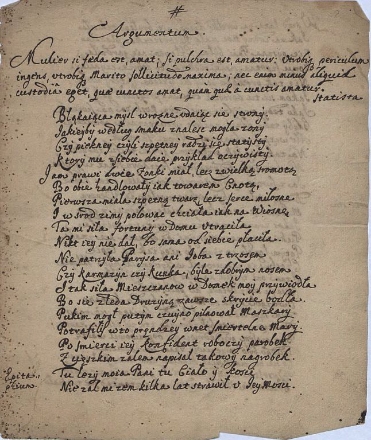 #
Argumentum
Mulier si fæda est, amat; si pulchra est, amatur: utrobiq periculum
ingens, utrobiq Marito sollicitudo maxima; nec enim minus aliquid
custodiæ eget, quæ cunctos amat, quam quæ à cunctis amatur.
Statista
Błąkaiąca myśl w rożne udaiąc się strony
Jakieyby według smaku znalesc mogła żony
Czy piękney czyli szpetney radzi się statysty
Ktory mu z siebie daie przykład oczywisty
Jam prawi dwie Żonki miał, lecz z wielką sromotą
Bo obie handlowały iak towarem Cnotą
Pierwsza miała szpetną twarz, lecz serce miłosne
I w środ zimy polować chciała iak na Wiosnę
Ta mi siła fortuny w domu utraciła
Nikt iey nie dał, bo sama od siebie płaciła
Nie patrzyła Parysa ani Joba z trosem
Czy karmazyn czy kunka, byle z dobrym nosem
I tak siła Mieszczanow w Domek moy przywiodła
Bo się z Drużyną zawsze skrycie
Pukim mogł putym czuyno pilnował Maszkary
Potrafił w to prędzey wnet śmiertelne Mary
Po śmierci iey konfident roboczy parobek
Z ęszkim żalem napisał takowy nagrobek
Epita-
phium
Tu leży moia Pani tu Ciało y kości
Nie żal mi żem kilka lat strawił u Jey Mosci.